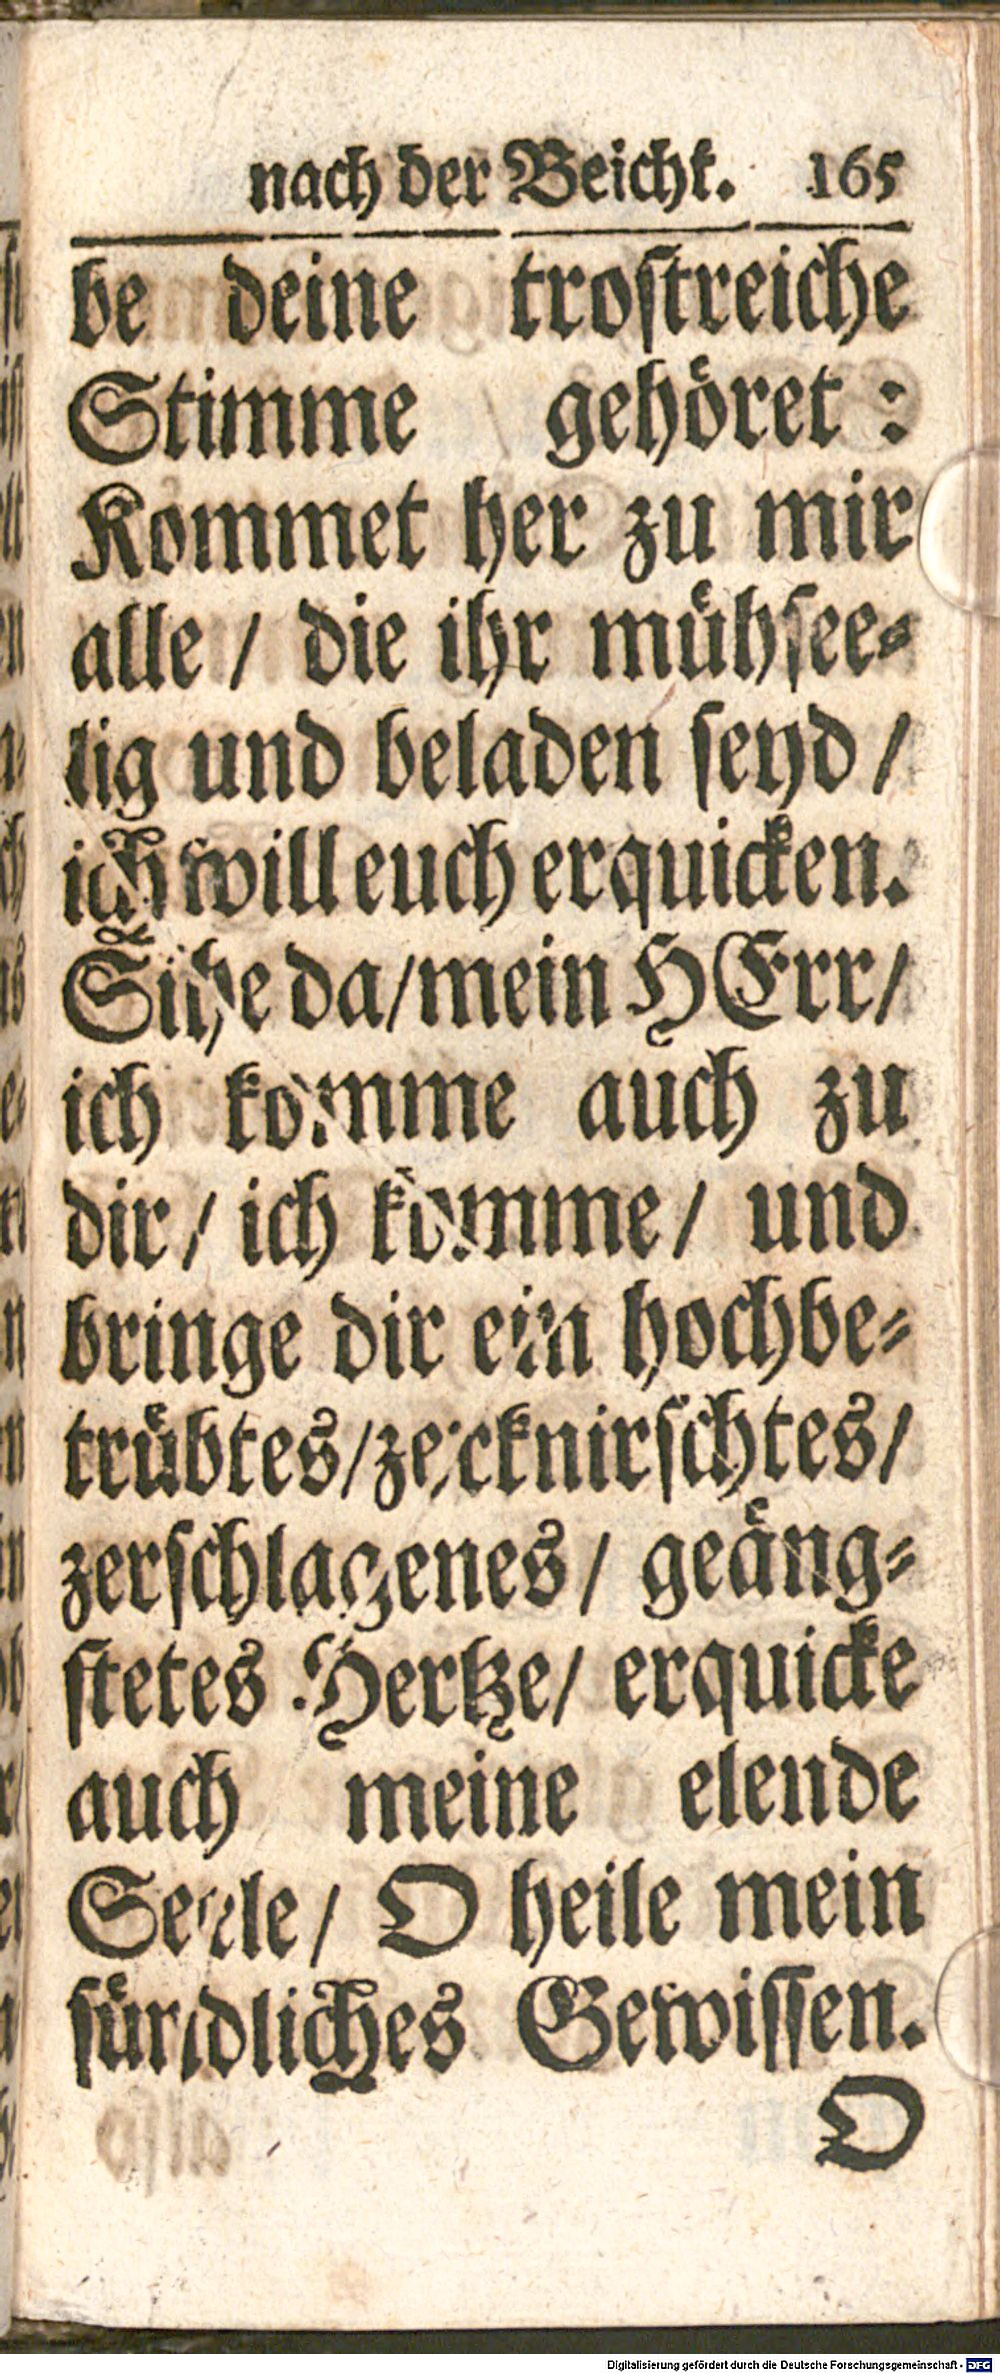 nach der Beicht. 165
be deine trostreiche
Stimme gehöret:
Kommet her zu mir
alle / die ihr mühsee-
lig und beladen seyd /
ich will euch erquicken.
Sihe da/mein HErr/
ich komme auch zu
dir / ich komme / und
bringe dir ein hochbe-
trübtes/zerknirschtes/
zerschlagenes / geäng-
stetes Hertze / erquicke
auch meine elende
Seele / O heile mein
sündliches Gewissen.
O
Digitalisierung gefördert durch die Deutsche Forschungsgemeinschaft - DFG